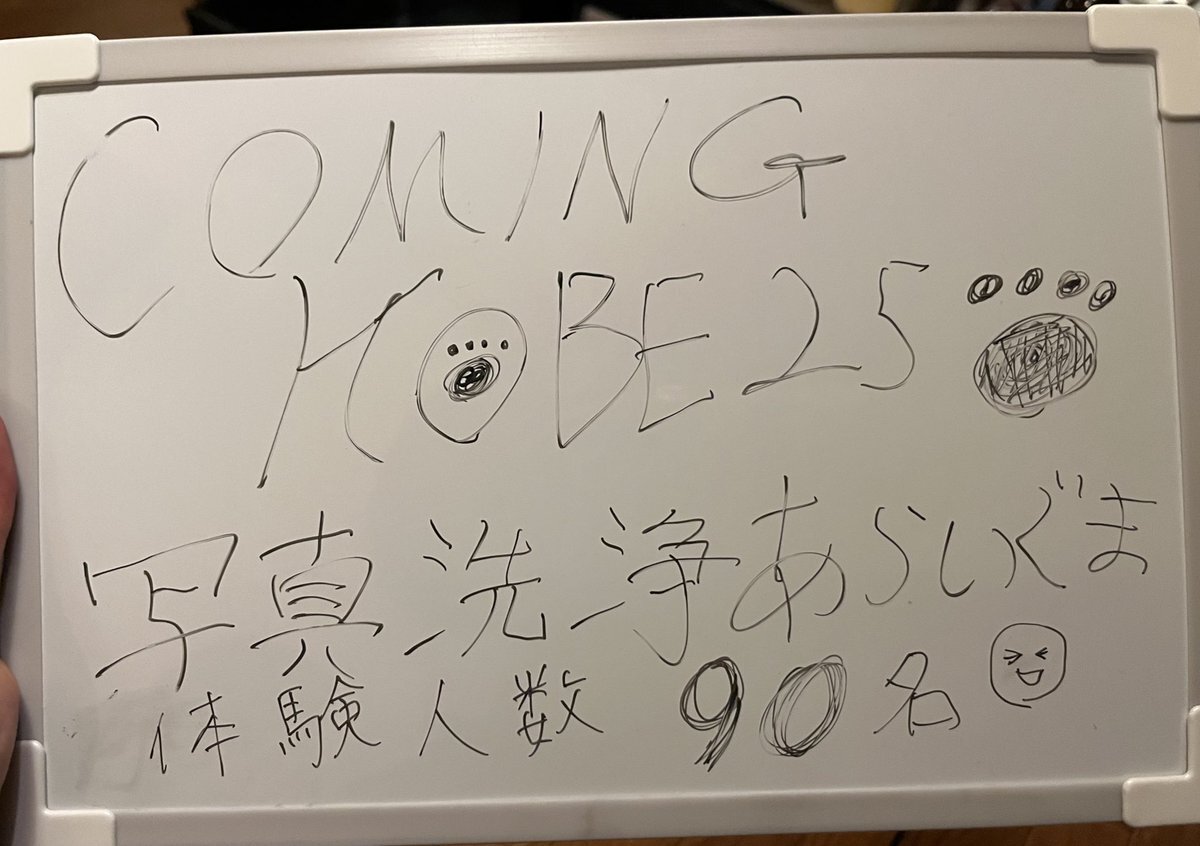 COMING
KOBE25
写真洗浄あらいぐま
体験人数 90名